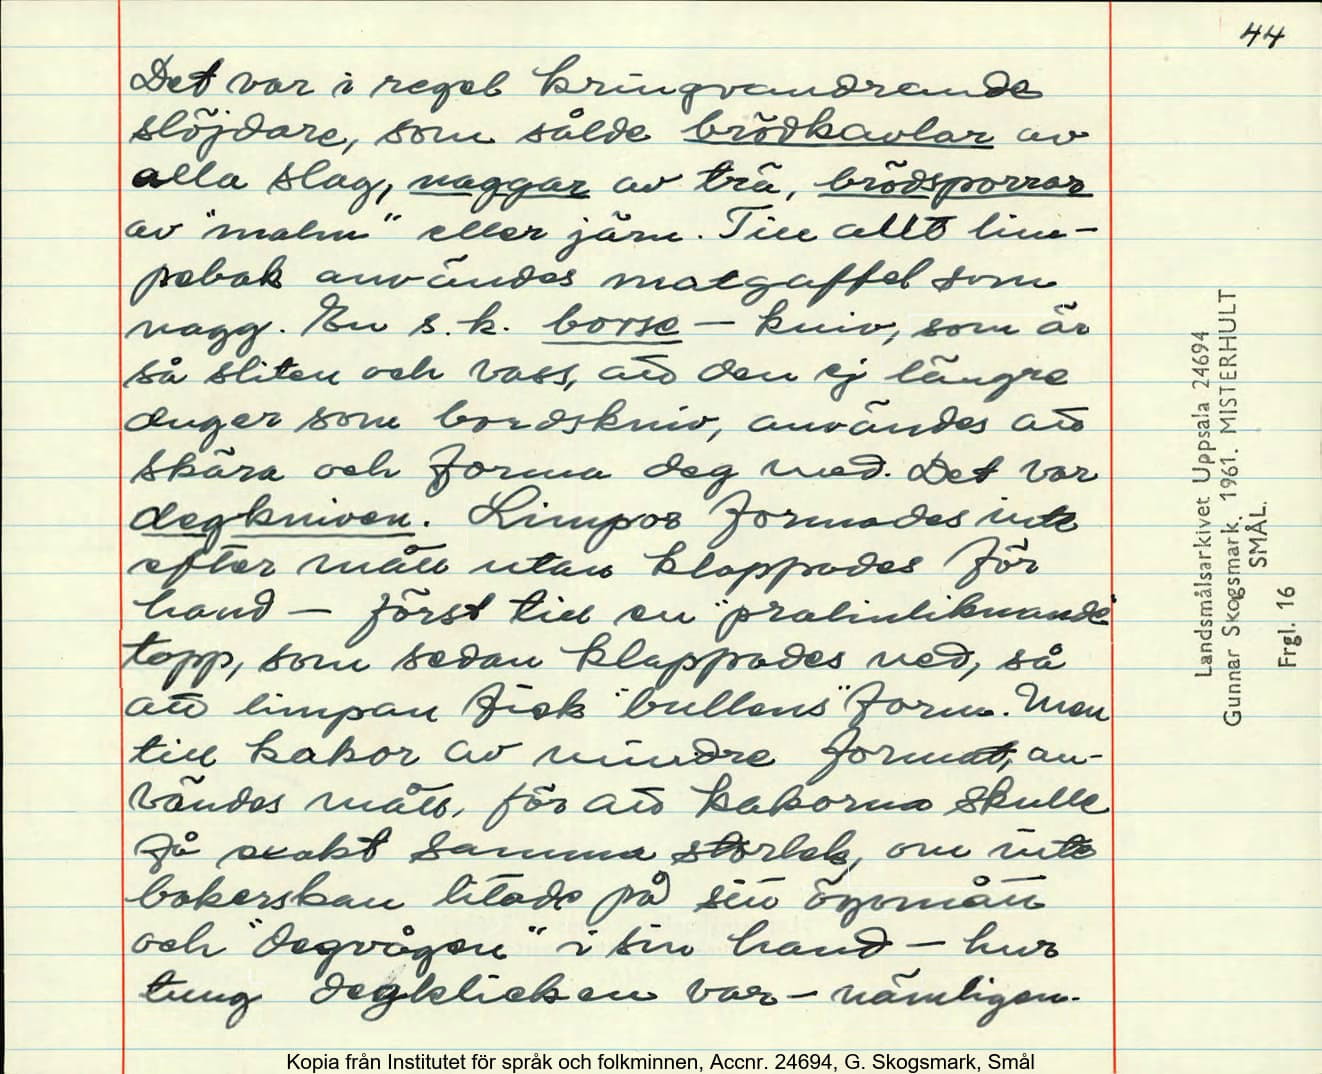 44
Det var i regel kringvandrande
slöjdare, som sålde brödkavlar av
alla slag, naggar av trä, brödsporrar
av "malm" eller järn. Till allt lim-
pebak användes matgaffel som
nagg. En s.k. borse – kniv, som är
så sliten och vass, att den ej längre
duger som bordskniv, användes att
skära och forma deg med. Det var
degkniven. Limpor formades inte
efter mått utan klappades för
hand – först till en "pralinliknande"
topp, som sedan klappades ned, så
att limpan fick "bullens" form. Men
till kakor av mindre format, an-
vändes mått, för att kakorna skulle
få exakt samma storlek, om inte
bakerskan litade på sitt ögonmått
och "degvågen" i sin hand – hur
tung degklicken var – nämligen.
Landsmålsarkivet Uppsala 24694
Gunnar Skogsmark. 1961. MISTERHULT
SMÅL.
Frgl. 16
Kopia från Institutet för språk och folkminnen, Accnr. 24694, G. Skogsmark, Smål